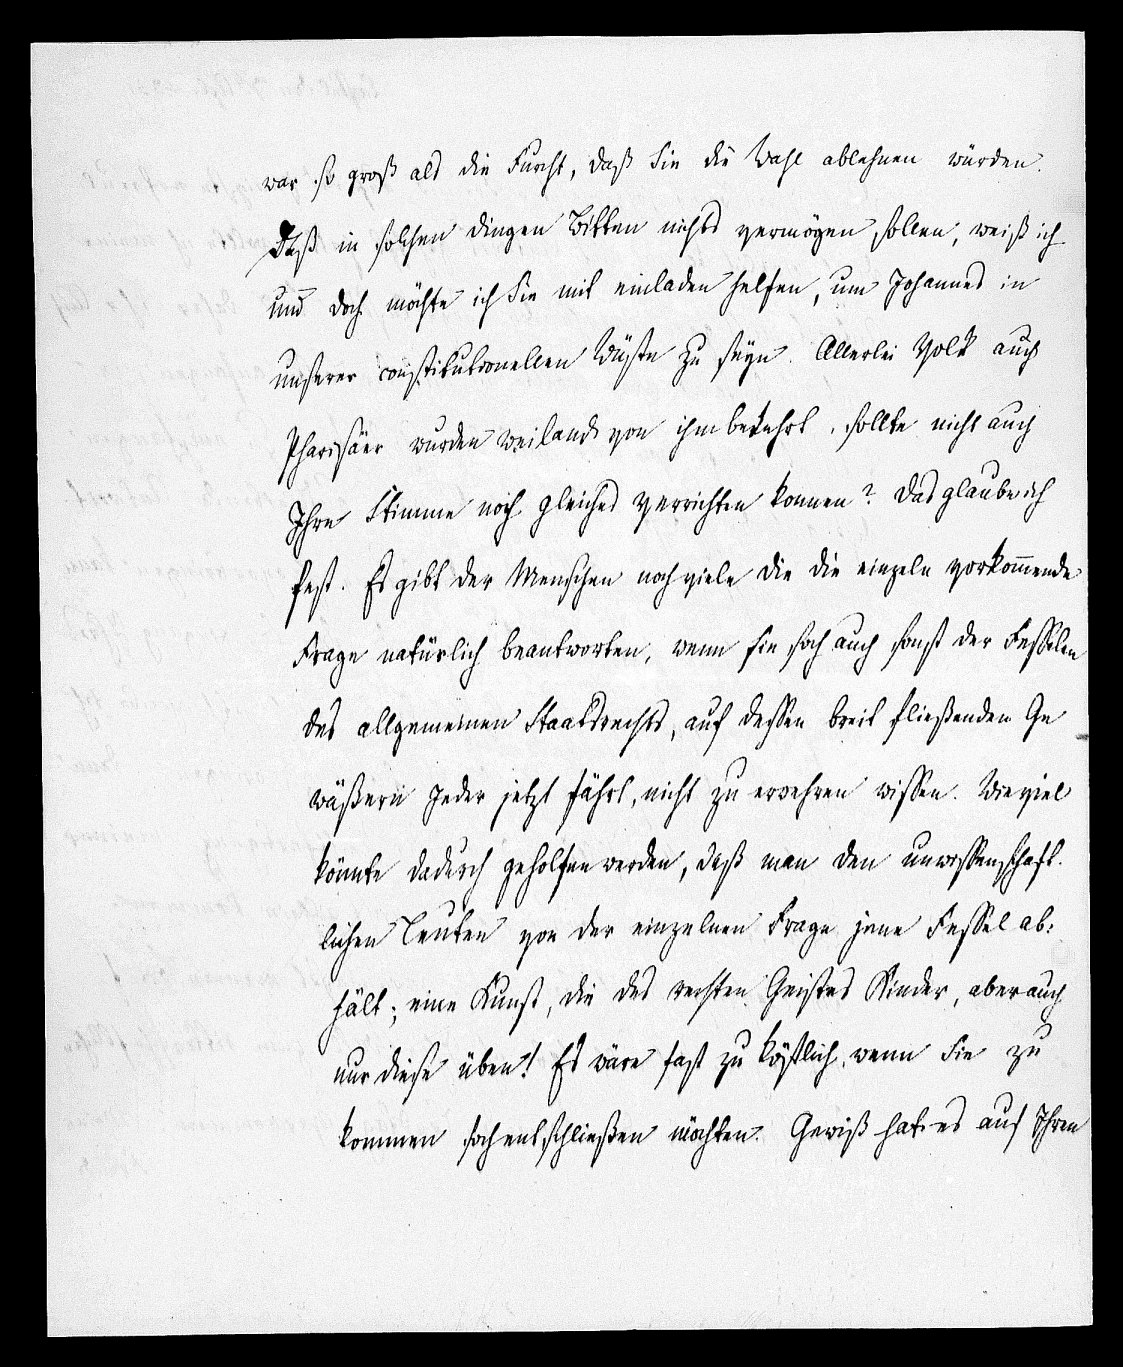 war so groß als die Furcht, daß Sie die Wahl ablehnen würden.
Daß in solchen Dingen Bitten nichts vermögen sollen, weiß ich
und doch möchte ich Sie mit einladen helfen, um Johannes in
unserer constitutionellen Wüste zu seyn. Allerlei Volk auch
Pharisäer wurden weiland von ihm bekehrt. sollte nicht auch
Ihre Stimme noch gleiches verrichten konnen? Das glaube ich
fest. Es gibt der Menschen noch viele die die einzeln vorkom̅ende
Frage natürlich beantworten, wenn sie sich auch sonst der Fesseln
des allgemeinen Staatsrechts, auf dessen breit fließenden Ge
wäßern Jeder jetzt fährt, nicht zu erwehren wissen. Wie viel
könnte dadurch geholfen werden, daß man den unwissenschaft.
lichen Leuten von der einzelnen Frage jene Fessel ab:
hält; eine Kunst, die des rechten Geistes Kinder, aber auch
nur diese üben! Es wäre fast zu köstlich, wenn Sie zu
kommen sich entschließen möchten. Gewiß hat es auf Ihren